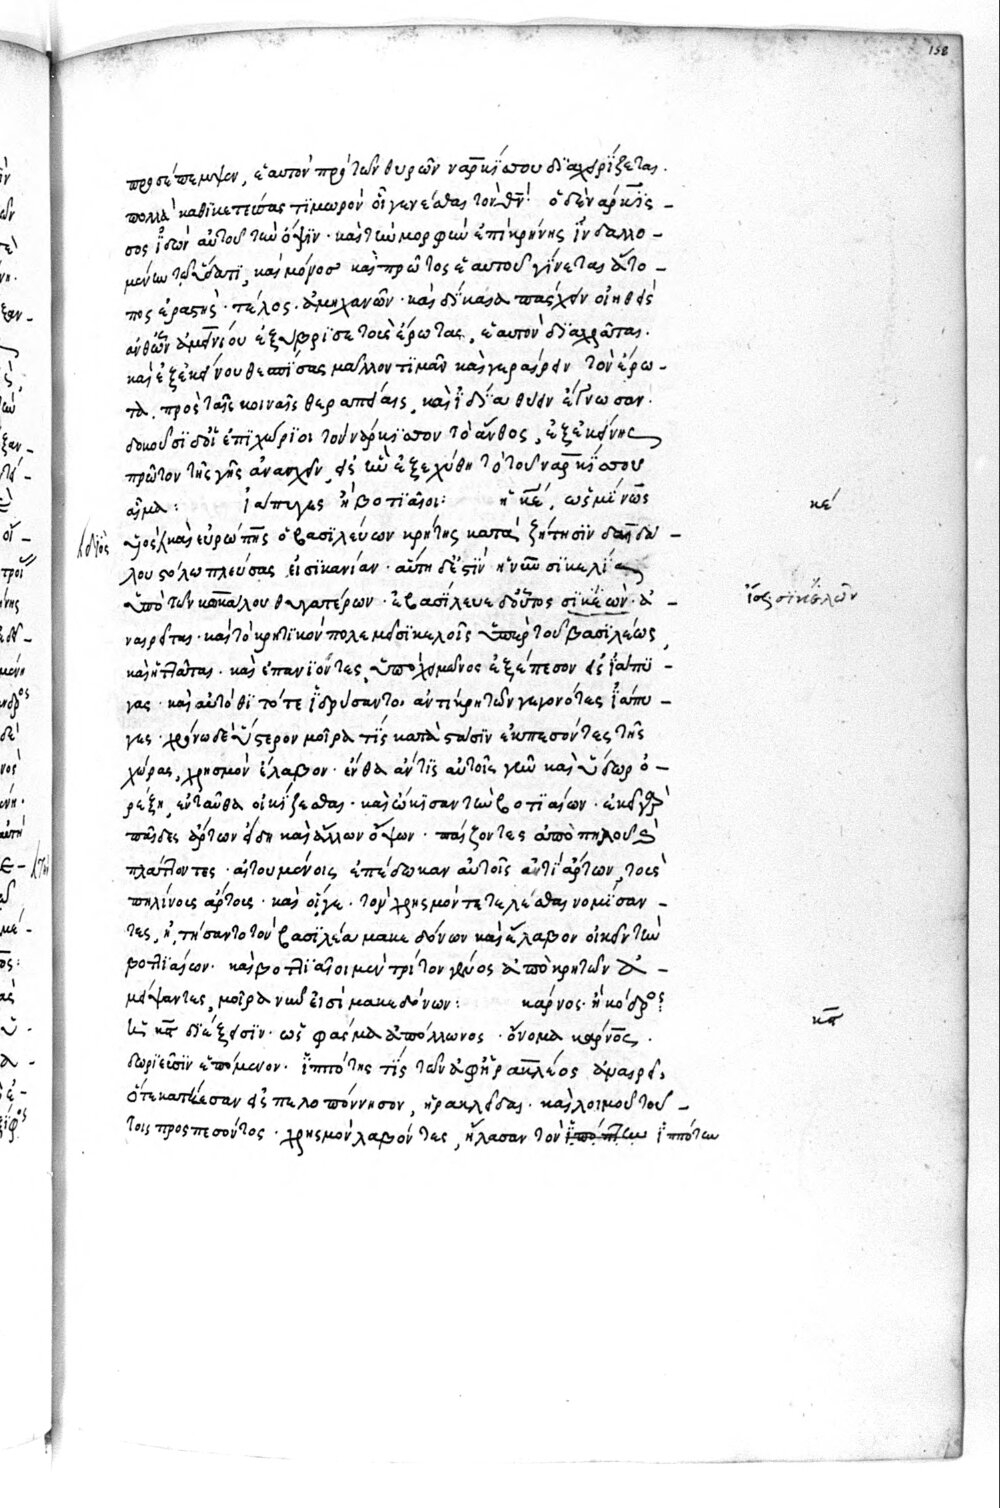 158
προσέπεμψεν, ἑαυτὸν πρὸ τῶν θυρῶν ναρκίσσου διαχειρίζεται.
πολλὰ καθικετεύσας τιμωρόν οἱ γενέσθαι τὸν θν. ὁ δὲ νάρκισ-
σος ἰδὼν αὐτοῦ τὴν ὄψιν καὶ τὴν μορφὴν ἐπὶ κρήνης ἰνδαλλο-
μένην τῷ ὕδατι, καὶ μόνος καὶ πρῶτος ἑαυτοῦ γίνεται ἄτο-
πος ἐραστής. τέλος ἀμηχανῶν καὶ δίκαια πάσχειν οἰηθεὶς
ἀνθ' ὧν ἀμεινίου ἐξύβρισε τοὺς ἔρωτας, ἑαυτὸν διαχρᾶται.
καὶ ἐξ ἐκείνου θεσπίσας μᾶλλον τιμᾶν καὶ γεραίρειν τὸν ἔρω-
τα πρὸς ταῖς κοιναῖς θεραπείαις, καὶ ἰδία θύειν ἔγνωσαν.
δοκοῦσι δ' οἱ ἐπιχώριοι τὸν νάρκισσον τὸ ἄνθος, ἐξ ἐκείνης
πρῶτον τῆς γῆς ἀνασχεῖν, εἰς ἣν ἐξεχύθη τὸ τοῦ ναρκίσσου
αἷμα: ἰάπυγες ἢ βοτιαῖοι: ἡ κε, ὡς μίνως
κε
ὁ διὸς καὶ εὐρώπης ὁ βασιλεύων κρήτης κατὰ ζήτησιν δαιδά
λου στόλω πλεύσας εἰς σικανίαν. αὕτη δέ ἐστιν ἡ νῦν σικελία
ὑπὸ τῶν κωκάλου θυγατέρων. ἐβασίλευε δ' οὗτος σικέων. ἀ-
ἴσως σικελῶν
ναιρεῖται. καὶ τὸ κρητικὸν πολεμεῖ σικελοῖς ὑπὲρ τοῦ βασιλέως,
καὶ ἡττᾶται. καὶ ἐπανιόντες, ὑπὸ χειμῶνος ἐξέπεσον εἰς ἰάπυ-
γας. καὶ αὐτόθι τότε ἱδρύσαντο, ἀντὶ κρητῶν γεγονότες ἰάπυ-
γες. χρόνω δὲ ὕστερον μοῖρά τις κατὰ στάσιν ἐκπεσόντες τῆς
χώρας, χρησμὸν ἔλαβον. ἔνθα ἄν τις αὐτοῖς γῆν καὶ ὕδωρ ὀ-
ρέξη, ἐνταῦθα οἰκίζεσθαι. καὶ ᾤκισαν τὴν βοτιαίων. ἐκεῖ γὰρ
παῖδες ἄρτων εἴδη καὶ ἄλλων ὄψων παίζοντες ἀπὸ πηλοῦ
πλάττοντες, αἰτουμένοις ἐπέδωκαν αὐτοῖς ἀντὶ ἄρτων, τοὺς
πηλίνους ἄρτους. καὶ οἵ γε τὸν χρησμὸν τετελέσθαι νομίσαν-
τες, ᾐτήσαντο τὸν βασιλέα μακεδόνων καὶ ἔλαβον οἰκεῖν τὴν
βοτιαίων. καὶ βοτιαῖοι μὲν τρίτον γένος ἀπὸ κρητῶν ἀ-
μείψαντες, μοῖρα νῦν εἰσὶ μακεδόνων: κάρνος. ἡ κόδρος
κς
ἡ κς διέξεισιν ὡς φάσμα ἀπόλλωνος. ὄνομα κάρνος.
δωριεῦσιν ἑπόμενον. ἱππότης τις τῶν ἀφ' ἡρακλέος ἀναιρεῖ,
ὅτε κατήεσαν εἰς πελοπόννησον, ἡρακλεῖδαι. καὶ λοιμοῦ τού-
τοις προσπεσόντος, χρησμὸν λαβόντες, ἤλασαν τὸν ἱππότην